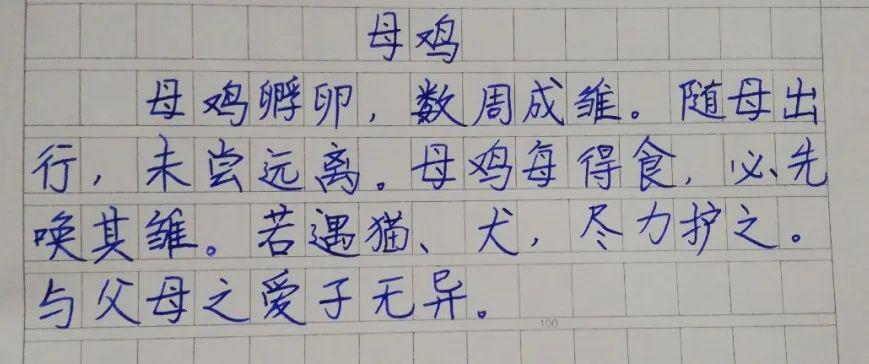 母鸡
母鸡孵卵，数周成雏。随母出
行，未尝远离。母鸡每得食，必先
唤其雏。若遇猫、犬，尽力护之。
与父母之爱子无异。
100